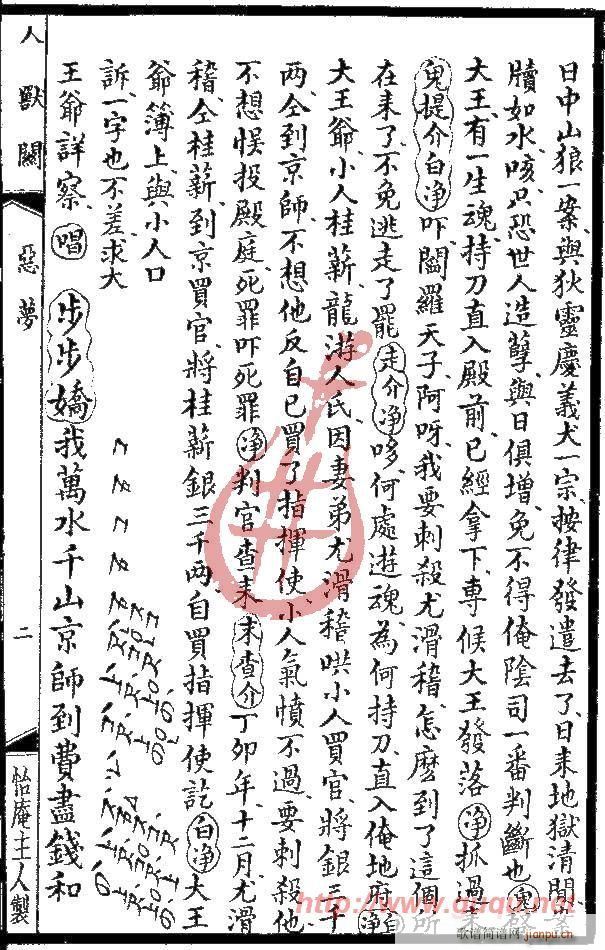 日中山狼一案、與狄靈慶義犬一宗、按律發遣去了、日來地獄清閒、
牘如水咳只恐世人造孽、與日俱增、免不得俺陰司一番判斷也、鬼
大王、有一生魂、持刀直入殿前、已經拿下、專候大王發落、淨抓過
鬼提介白净吓、閻羅天子、阿呀、我要刺殺尤滑稽、怎麼到了這個
在來了、不免逃走了罷、走介净哆、何處遊魂、為何持刀、直入俺地府、白净
大王爺、小人桂薪、龍游人氏、因妻弟尤滑稽哄小人買官、將銀三千
两、仝到京師、不想他反自己買了指揮使、小人氣憤不過、要刺殺他、
不想悮投殿庭、死罪吓死罪、净判官查来、末查介丁卯年、十二月、尤滑
稽仝桂薪、到京買官、將桂薪銀三千两、自買指揮使訖、白净大王
爺簿上、與小人口
訴、一字也不差、求大
王爺詳察、唱 步步嬌 我萬水千山京師到費盡錢和
人獸關
惡夢
二
怡庵主人製
http://www.guqu.net
歌谱简谱网
jianpu.cn